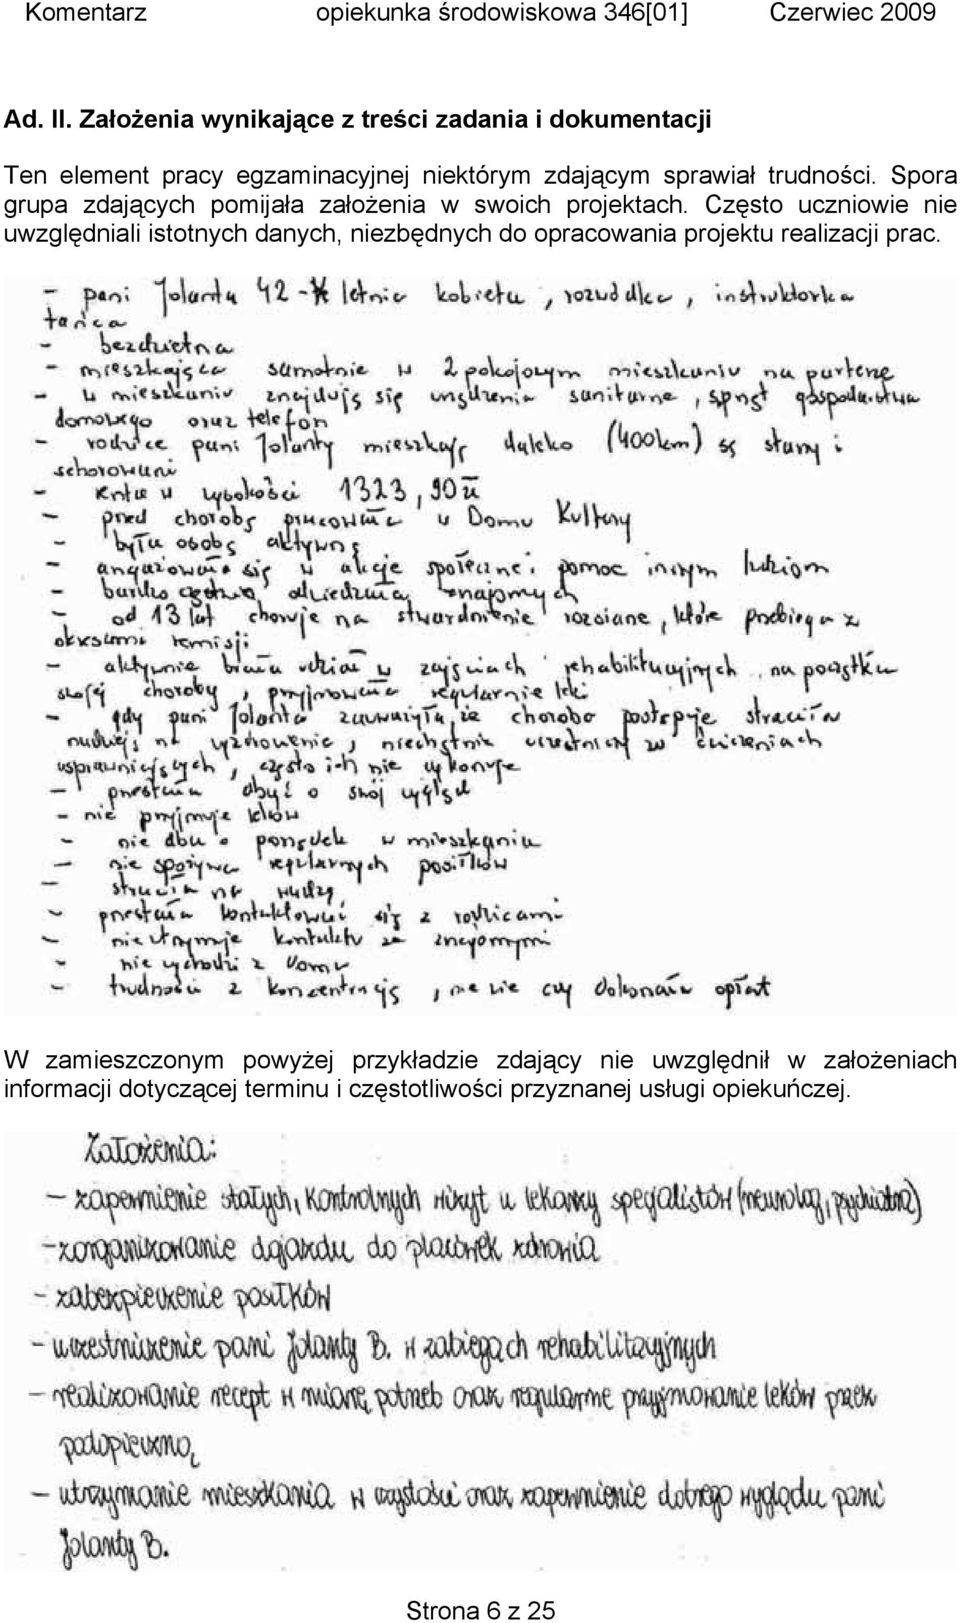 Komentarz opiekunka środowiskowa 346[01] Czerwiec 2009
Ad. II. Założenia wynikające z treści zadania i dokumentacji
Ten element pracy egzaminacyjnej niektórym zdającym sprawiał trudności. Spora
grupa zdających pomijała założenia w swoich projektach. Często uczniowie nie
uwzględniali istotnych danych, niezbędnych do opracowania projektu realizacji prac.
- pani Jolanta 42 - letnia kobieta, rozwódka, instruktorka
tańca
- bezdzietna
- mieszkająca samotnie w 2 pokojowym mieszkaniu na parterze
- w mieszkaniu znajdują się urządzenia sanitarne, sprzęt gospodarstwa
domowego oraz telefon
- rodzice pani Jolanty mieszkają daleko (400km) są starzy i
schorowani
- renta w wysokości 1323,90zł
- przed chorobą pracowała w Domu Kultury
- była osobą aktywną
- angażowała się w akcje społeczne i pomoc innym ludziom
- bardzo często odwiedzała znajomych
- od 13 lat choruje na stwardnienie rozsiane, które przebiega z
okresami remisji
- aktywnie brała udział w zajęciach rehabilitacyjnych, na początku
swojej choroby, przyjmowała regularnie leki
- gdy pani Jolanta zauważyła, że choroba postępuje straciła
nadzieję na wyzdrowienie, niechętnie uczestniczy w ćwiczeniach
usprawniających, często ich nie wykonuje
- przestała dbać o swój wygląd
- nie przyjmuje leków
- nie dba o porządek w mieszkaniu
- nie spożywa regularnych posiłków
- straciła na wadze
- przestała kontaktować się z rodzicami
- nie utrzymuje kontaktu ze znajomymi
- nie wychodzi z domu
- trudności z koncentracją, nie wie czy dokonała opłat
W zamieszczonym powyżej przykładzie zdający nie uwzględnił w założeniach
informacji dotyczącej terminu i częstotliwości przyznanej usługi opiekuńczej.
Założenia:
- zapewnienie stałych, kontrolnych wizyt u lekarzy specjalistów (neurolog, psychiatra)
- zorganizowanie dojazdu do placówek zdrowia
- zabezpieczenie posiłków
- uczestniczenie pani Jolanty B. w zabiegach rehabilitacyjnych
- realizowanie recept w miarę potrzeb oraz regularne przyjmowanie leków przez
podopieczną
- utrzymanie mieszkania w czystości oraz zapewnienie dobrego wyglądu pani
Jolanty B.
Strona 6 z 25